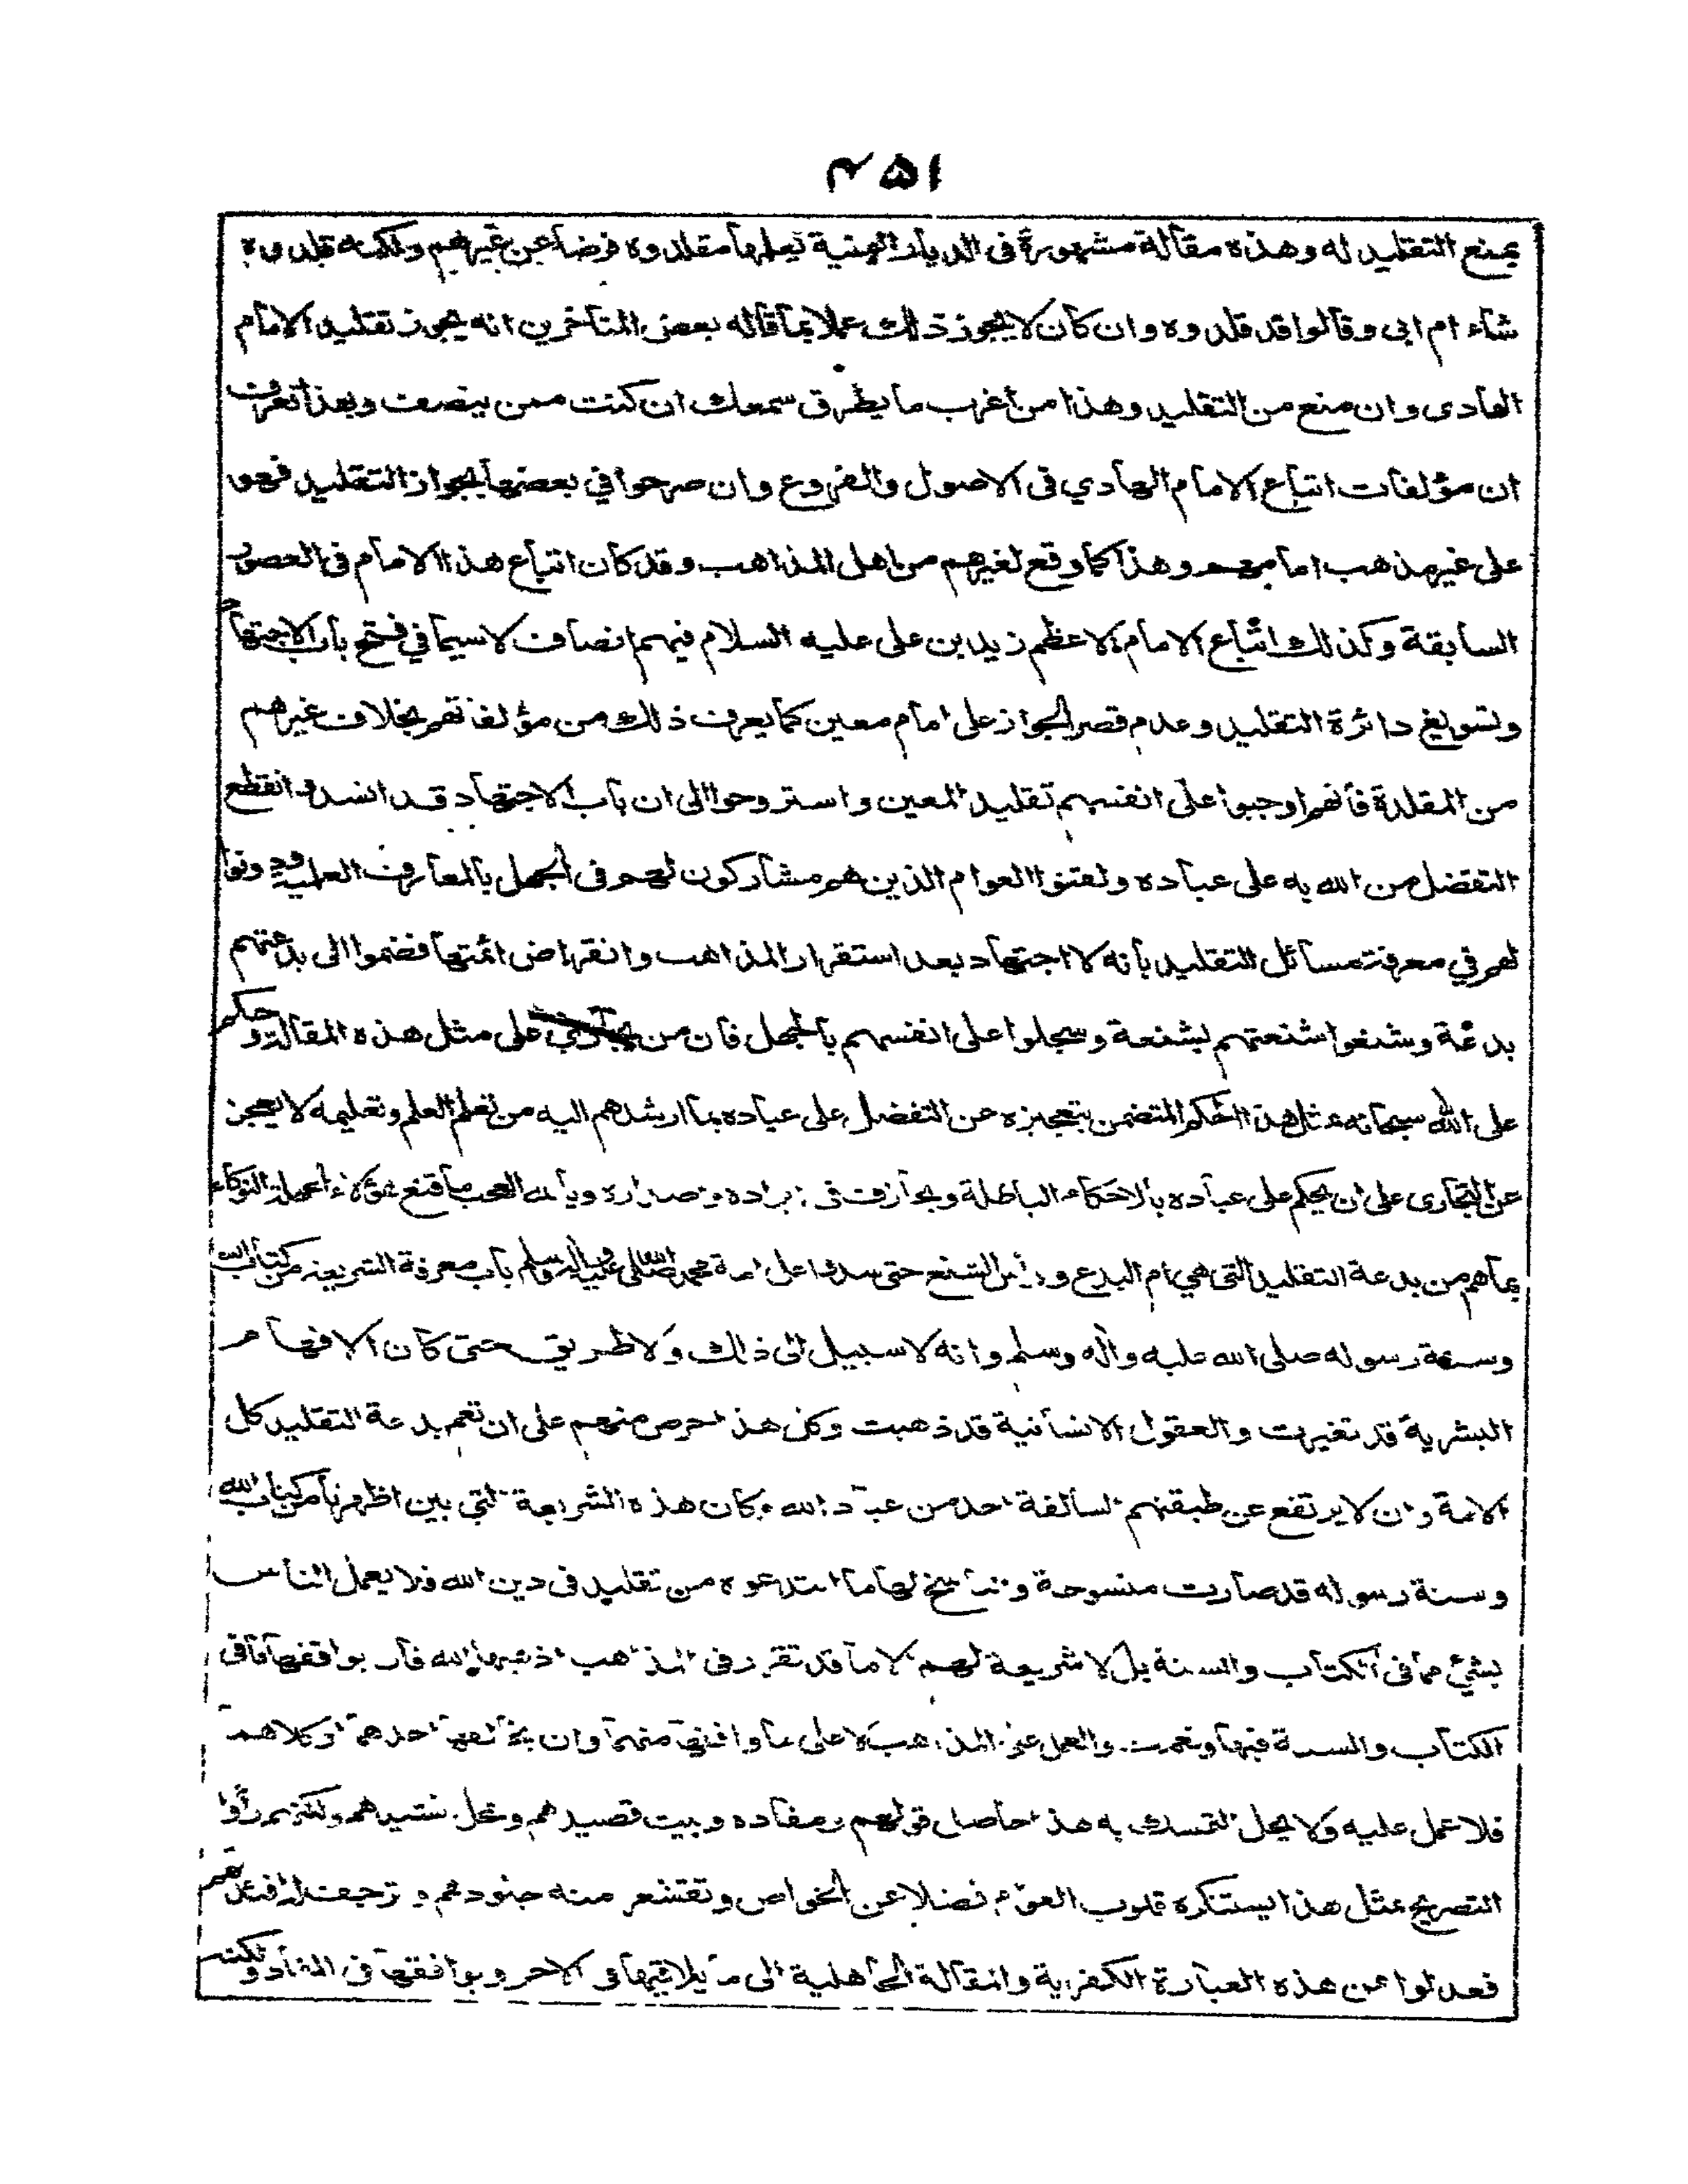 ۴۵۱
يمنع التقليد له وهذه مقالة مشهورة فى الديار اليمنية يعلمها مقلدوه فرضا عن غيرهم ولكنه قلدوه
شاء ام ابى وقالوا قد قلدوه وان كان لا يجوز ذلك عملا بما قاله بعض المتأخرين انه يجوز تقليد الامام
الهادى وان منع من التقليد وهذا من أغرب ما يطرق سمعك ان كنت ممن ينصف وبهذا تعرف
ان مؤلفات اتباع الامام الهادي فى الاصول والفروع وان صرحوا في بعضها بجواز التقليد فهو
على غير مذهب امامهم وهذا كما وقع لغيرهم من اهل المذاهب وقد كان اتباع هذا الامام فى العصور
السابقة وكذلك اتباع الامام الاعظم زيد بن على عليه السلام فيهم انصاف لا سيما في فتح باب الاجتهاد
وتسويغ دائرة التقليد وعدم قصر الجواز على امام معين كما يعرف ذلك من مؤلفاتهم بخلاف غيرهم
من المقلدة فانهم اوجبوا على انفسهم تقليد المعين واستروحوا الى ان باب الاجتهاد قد انسد وانقطع
التفضل من الله به على عباده ولقنوا العوام الذين هم مشاركون لهم فى الجهل بالمعارف العلمية ودونوا
لهم في معرفة مسائل التقليد بأنه لا اجتهاد بعد استقرار المذاهب وانقراض ائمتها فضموا الى بدعتهم
بدعة وشنعوا شنعتهم بشنعة وسجلوا على انفسهم بالجهل فان من يجترئ على مثل هذه المقالة وحكم
على الله سبحانه بمثل هذا الحكم المتضمن بتعجيزه عن التفضل على عباده بما ارشدهم اليه من تعلم العلم وتعليمه لا يعجز
عن التجارى على ان يحكم على عباده بالاحكام الباطلة ويجازف فى ايراده واصداره ويا لله العجب ما قنع هؤلاء اعملة النوكاء
بما هم من بدعة التقليد التى هي ام البدع ورأس الشنع حتى سدوا على امة محمد صلى الله عليه واله وسلم باب معرفة الشريعة من كتاب الله
وسنة رسوله صلى الله عليه وآله وسلم وانه لا سبيل الى ذلك ولا طريق حتى كان الافهام
البشرية قد تغيرت والعقول الانسانية قد ذهبت وكل هذا حرص منهم على ان تعم بدعة التقليد كل
الامة وان لا يرتفع عن طبقتهم السالفة احد من عباد الله وكان هذه الشريعة التي بين اظهرنا من كتاب الله
وسنة رسوله قد صارت منسوخة والناسخ لها ما ابتدعوه من تقليد فى دين الله فلا يعمل الناس
بشئ مما فى الكتاب والسنة بل لا شريعة لهم الا ما قد تقرر فى المذاهب اذهبها الله فان يوافقها ما فى
الكتاب والسنة فبها ونعمت والعمل على المذاهب لا على ما وافقها منهما وان يخالفها احدهما او كلاهما
فلا عمل عليه ولا يحل التمسك به هذا حاصل قولهم ومفاده وبيت قصيدهم ومحل نشيدهم ولكنهم رأوا
التصريح بمثل هذا يستنكره قلوب العوام فضلا عن الخواص وتقشعر منه جلودهم وترجف له افئدتهم
فعدلوا عن هذه العبارة الكفرية والمقالة الجاهلية الى ما يلاقيها فى الاخر ويوافقها فى المفاد